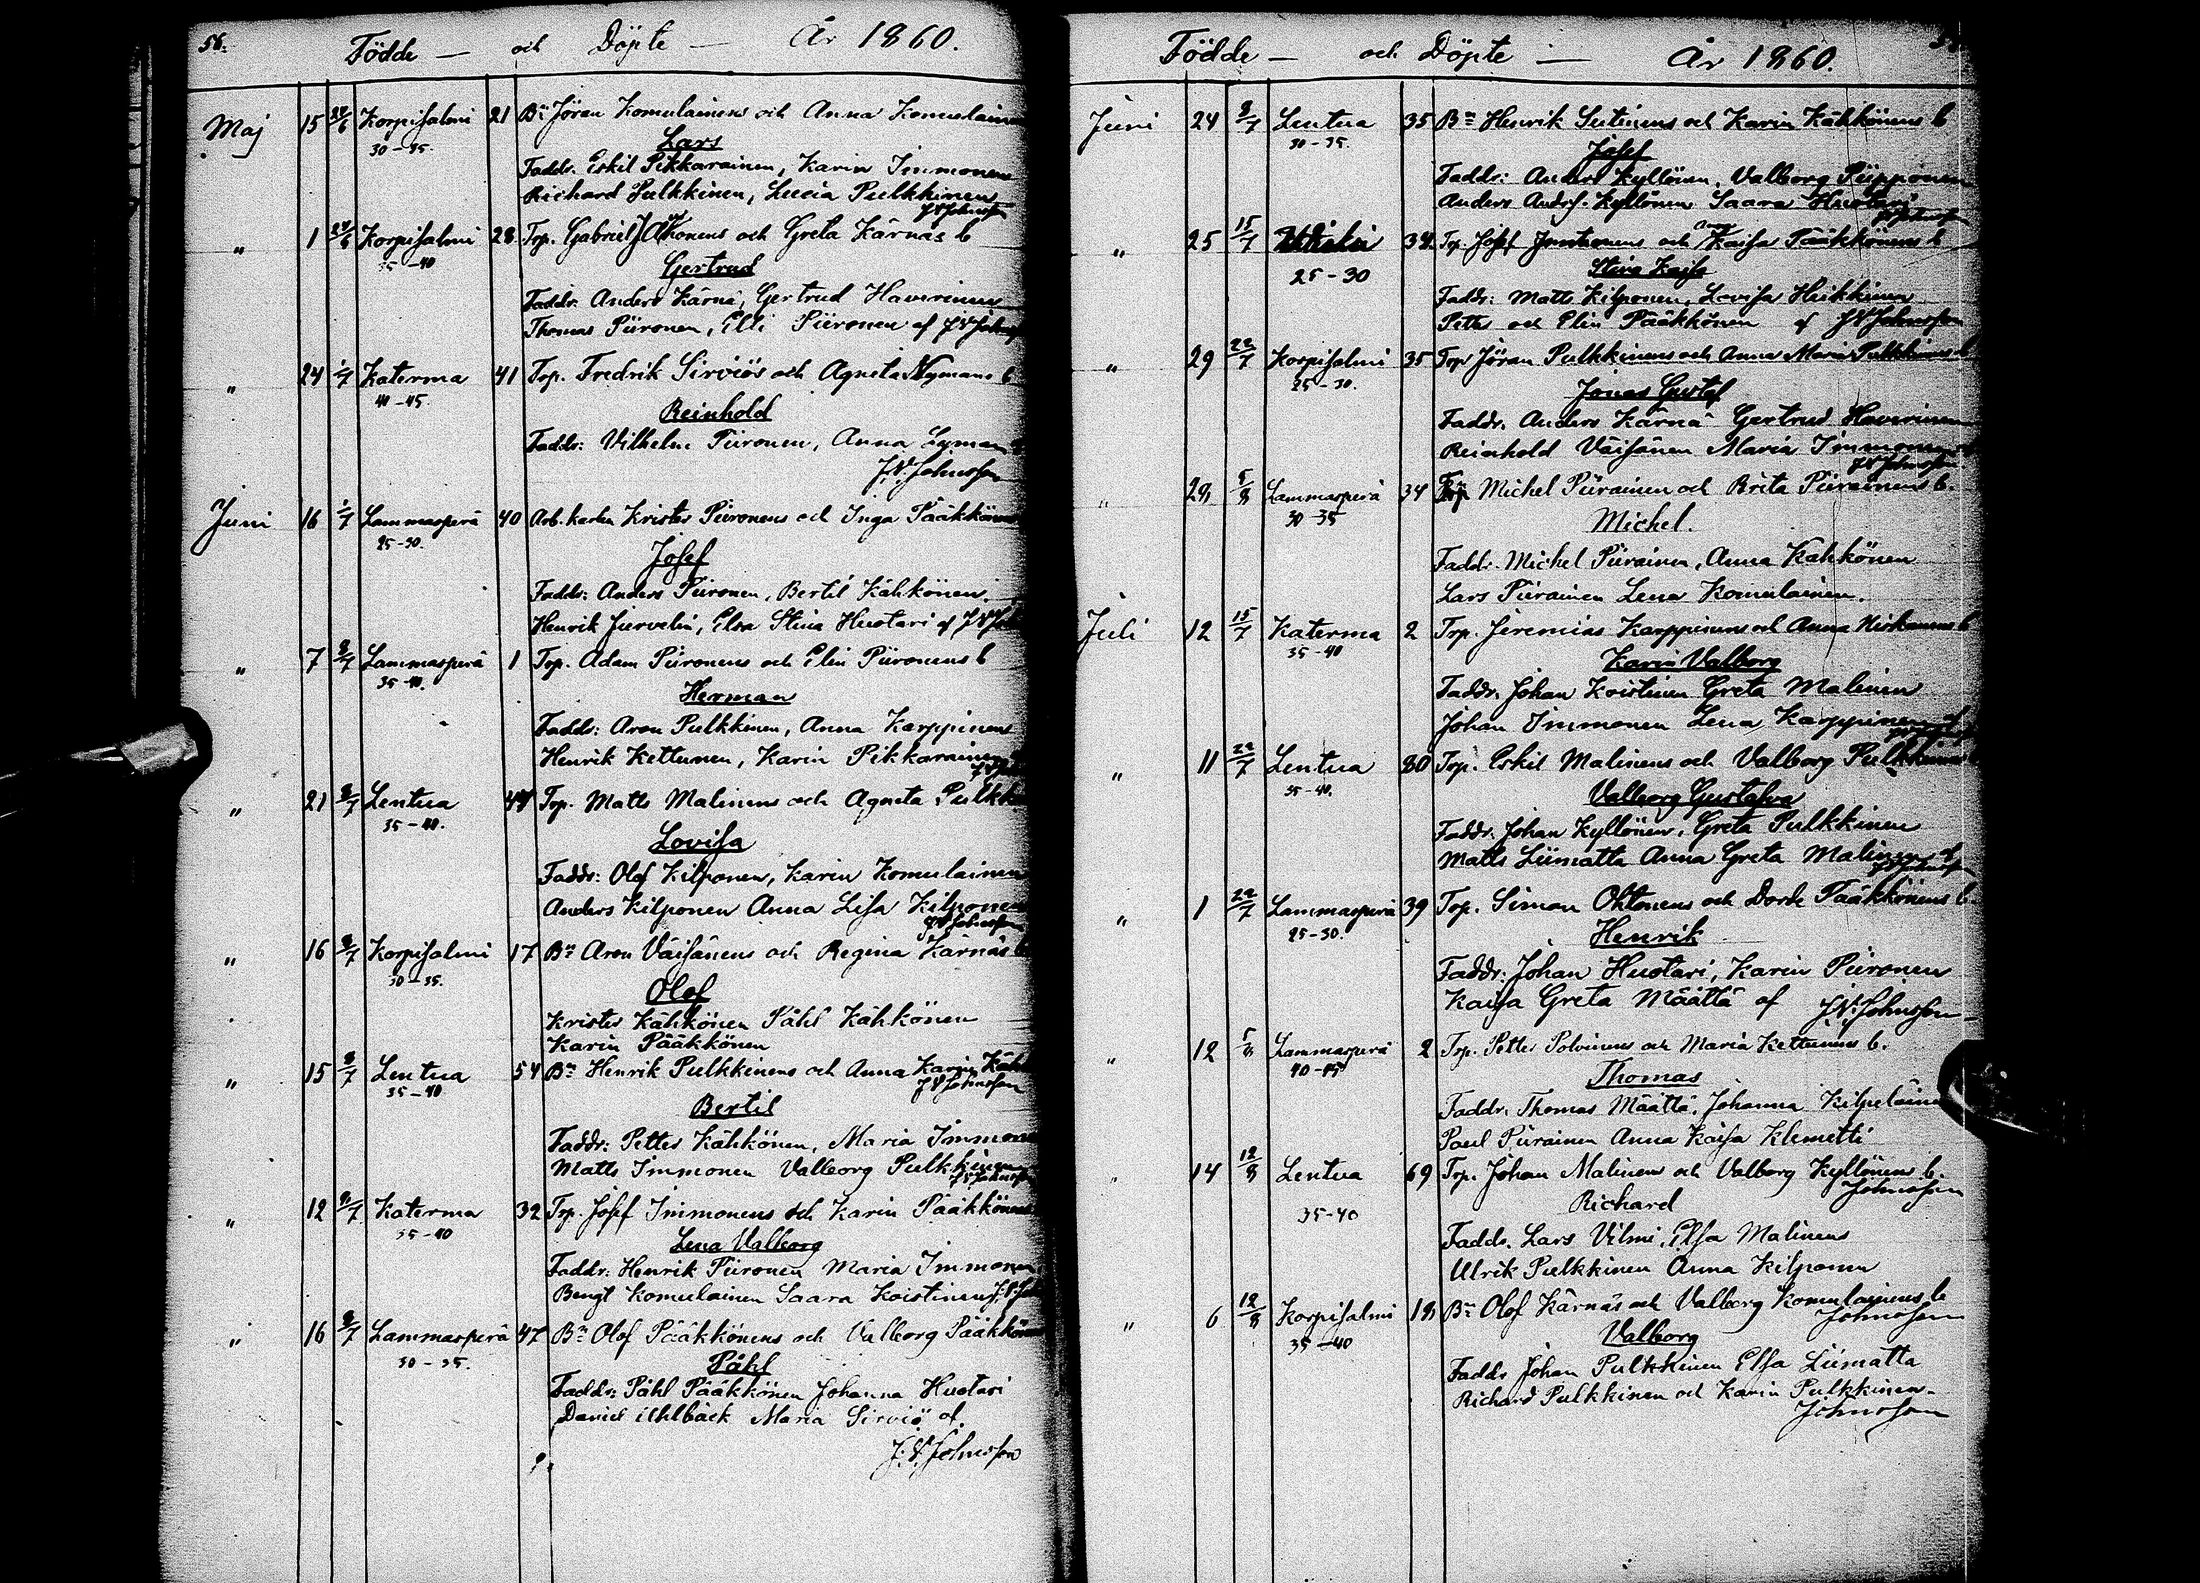 56.
Födde — och Döpte — År 1860.
Maj 15 24/6 Korpisalmi 21 Bn Jöran Komulainens och Anna Komulain
30-35.
Lars
Faddr. Eskil Pikkarainen, Karin Immonen
Richard Pulkkinen, Lucia Pulkkinen
J.V. Johnsson
" 1 24/6 Korpisalmi 28 Trp. Gabriel och Greta Kärnäs b
35-40
Gertrud
Faddr. Anders Kärnä, Gertrud Haverinen
Thomas Piironen, Elli Piironen af J.V. Johns
" 24 1/7 Katerma 41 Trp. Fredrik Sirviös och Agneta Nymans b
40-45.
Reinhold
Faddr: Vilhelm Piironen, Anna Lyman
J.V. Johnsson
Juni 16 1/7 Lammasperä 40 Arb. karlen Krister Piironens och Inga Pääkköne
25-30.
Josef
Faddr: Anders Piironen, Bertil Kähkönen.
Henrik Juvelin, Elsa Stina Huotari af J.V. Joh
" 7 8/7 Lammasperä 1 Trp. Adam Piironens och Elin Piironens b
35-40.
Herman
Faddr: Aron Pulkkinen, Anna Karppinens
Henrik Kettunen, Karin Pikkarainen
" 21 8/7 Lentua 44 Trp. Matts Malinens och Agneta Pulkk
35-40.
Lovisa
Faddr: Olof Kilponen, Karin Komulainen
Anders Kilponen Anna Lisa Kilponen
J.V. Johnsson
" 16 8/7 Korpisalmi 17 Bn Aron Väisänens och Regina Kärnäs b
30-35.
Olof
Krister Kähkönen Påhl Kähkönen
Karin Pääkkönen
" 15 8/7 Lentua 54 Bn Henrik Pulkkinens och Anna Karin Kähk
35-40
J.V. Johnsson
Bertil
Faddr: Petter Kähkönen, Maria Immone
Matts Immonen Valborg Pulkkinen
J.V. Johnsson
" 12 8/7 Katerma 32 Trp. Josef Immonens och Karin Pääkkönens
35-40
Lena Valborg
Faddr: Henrik Piironen Maria Immonen
Bengt Komulainen Saara Koistinens J.V. Joh
" 16 8/7 Lammasperä 47 Bn Olof Pääkkönens och Valborg Pääkköne
30-35.
Påhl
Faddr: Påhl Pääkkönen Johanna Huotari
Daniel Uhlbäck Maria Sirviö af.
J.V. Johnsson
Födde — och Döpte — År 1860.
Juni 24 8/7 Lentua 35 Bn Henrik Sutinens och Karin Kähkönens b
30-35.
Josef
Faddr: Anders Kyllönen, Valborg Piipponen
Anders Andrs. Kyllönen Saara Huotari
J.V. Johnsson
" 25 15/7 34 Trp. Josef Juntunens och Anna Kaisa Pääkkönens b
25-30
Stina Kaisa
Faddr: Matts Kilponen, Lovisa Heikkinen
Petter och Elin Pääkkönen af J.V. Johnsson
" 29 22/7 Korpisalmi 35 Trp Jöran Pulkkinens och Anna Maria Pulkkinens b
25-30.
Jonas Gustaf
Faddr. Anders Kärnä Gertrud Haverinen
Reinhold Väisänen Maria Immonen
J.V. Johnsson
" 29 5/8 Lammasperä 34 Trp Michel Piirainen och Brita Piirainens b.
30-35
Michel.
Faddr. Michel Piirainen, Anna Kähkönen
Lars Piirainen Lena Komulainen.
Juli 12 15/7 Katerma 2 Trp. Jeremias Karppinens och Anna Hirkanens b
35-40
Karin Valborg
Faddr. Johan Koistinen Greta Malinen
Johan Immonen Lena Karppinen af
" 11 22/7 Lentua 80 Trp. Eskil Malinens och Valborg Pulkkinens b
35-40.
Valborg Gustafva
Faddr. Johan Kyllönen, Greta Pulkkinen
Matts Liimatta Anna Greta Malinen af
J.V. Johnsson
" 1 22/7 Lammasperä 39 Trp. Simon Ohtonens och Dordi Pääkkönens b.
25-30.
Henrik
Faddr: Johan Huotari, Karin Piironen
Kaisa Greta Määttä af J.V. Johnsson
" 12 5/8 Lammasperä 2 Trp. Petter Polvinens och Maria Kettunens b.
40-45
Thomas
Faddr. Thomas Määttä, Johanna Kilpeläine
Paul Piirainen Anna Kaisa Klemetti
" 14 12/8 Lentua 69 Trp. Johan Malinens och Valborg Kyllönens b.
Johnsson
35-40
Richard
Faddr. Lars Vilmi, Elsa Malinens
Ulrik Pulkkinen Anna Kilponen
" 6 12/8 Korpisalmi 18 Bn Olof Kärnäs och Valborg Komulainens b
Johnsson
35-40
Valborg
Faddr Johan Pulkkinen Elsa Liimatta
Richard Pulkkinen och Karin Pulkkinen.
Johnsson